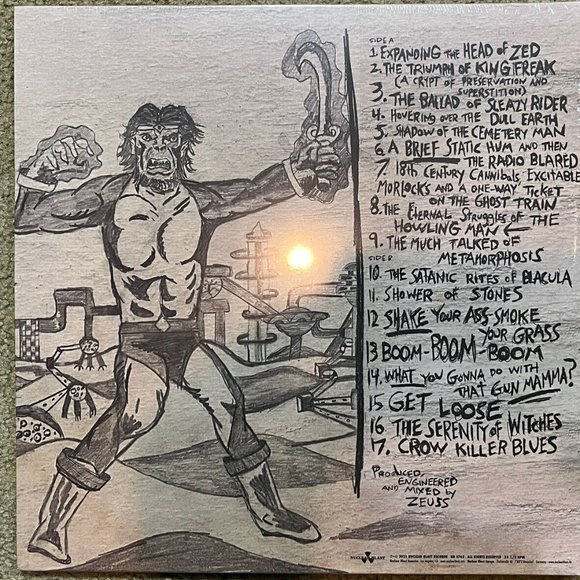 SIDE A
1. EXPANDING THE HEAD OF ZED
2. THE TRIUMPH OF KING FREAK
(A CRYPT OF PRESERVATION AND
SUPERSTITION)
3. THE BALLAD OF SLEAZY RIDER
4. HOVERING OVER THE DULL EARTH
5. SHADOW OF THE CEMETERY MAN
6. A BRIEF STATIC HUM AND THEN
THE RADIO BLARED
7. 18th CENTURY CANNIBALS EXCITABLE
MORLOCKS AND A ONE-WAY TICKET
ON THE GHOST TRAIN
8. THE ETERNAL STRUGGLES OF THE
HOWLING MAN
9. THE MUCH TALKED OF
METAMORPHOSIS
SIDE B
10. THE SATANIC RITES OF BLACULA
11. SHOWER OF STONES
12 SHAKE YOUR ASS SMOKE
YOUR GRASS
13 BOOM-BOOM-BOOM
14. WHAT YOU GONNA DO WITH
THAT GUN MAMMA?
15 GET LOOSE
16 THE SERENITY OF WITCHES
17. CROW KILLER BLUES
PRODUCED,
ENGINEERED
AND MIXED BY
ZEUSS
NUCLEAR BLAST
2021 NUCLEAR BLAST RECORDS ALL RIGHTS RESERVED 33 1/3 RPM